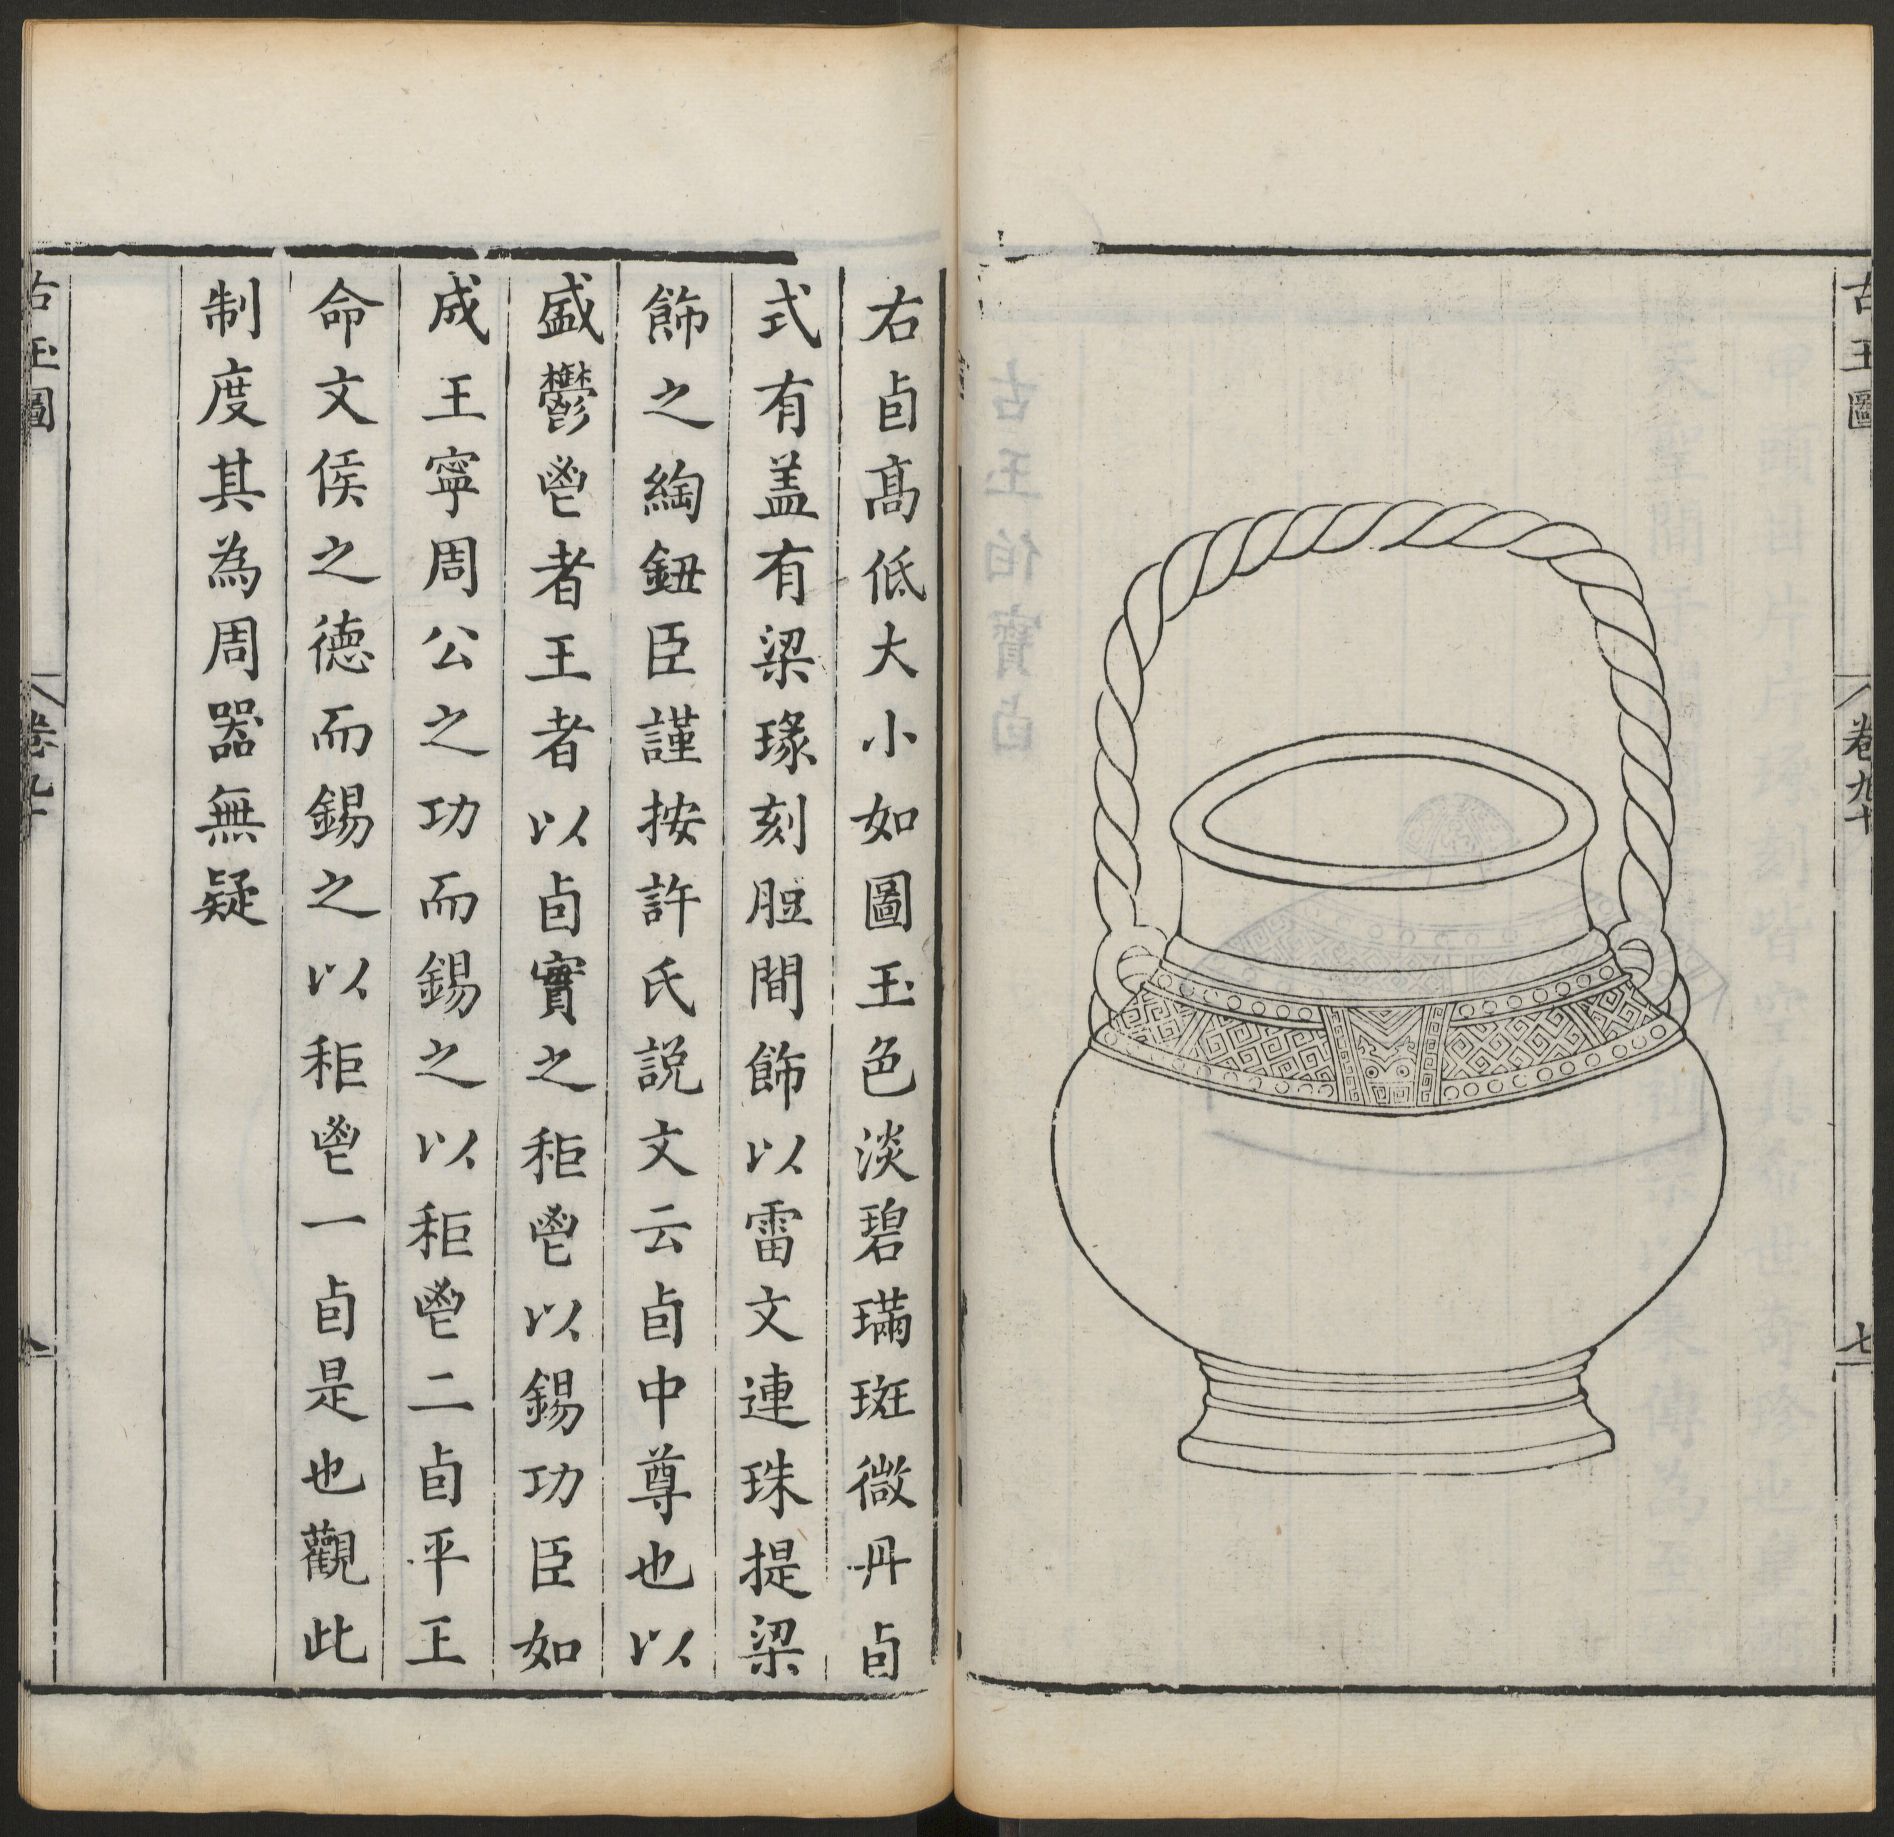 古玉圖
卷九十
七
右卣高低大小如圖玉色淡碧璊斑微丹卣
式有盖有梁瑑刻脰間飾以雷文連珠提梁
飾之綯鈕臣謹按許氏說文云卣中尊也以
盛鬱鬯者王者以卣實之秬鬯以錫功臣如
成王寧周公之功而錫之以秬鬯二卣平王
命文侯之德而錫之以秬鬯一卣是也觀此
制度其為周器無疑
古玉圖
卷九十
八